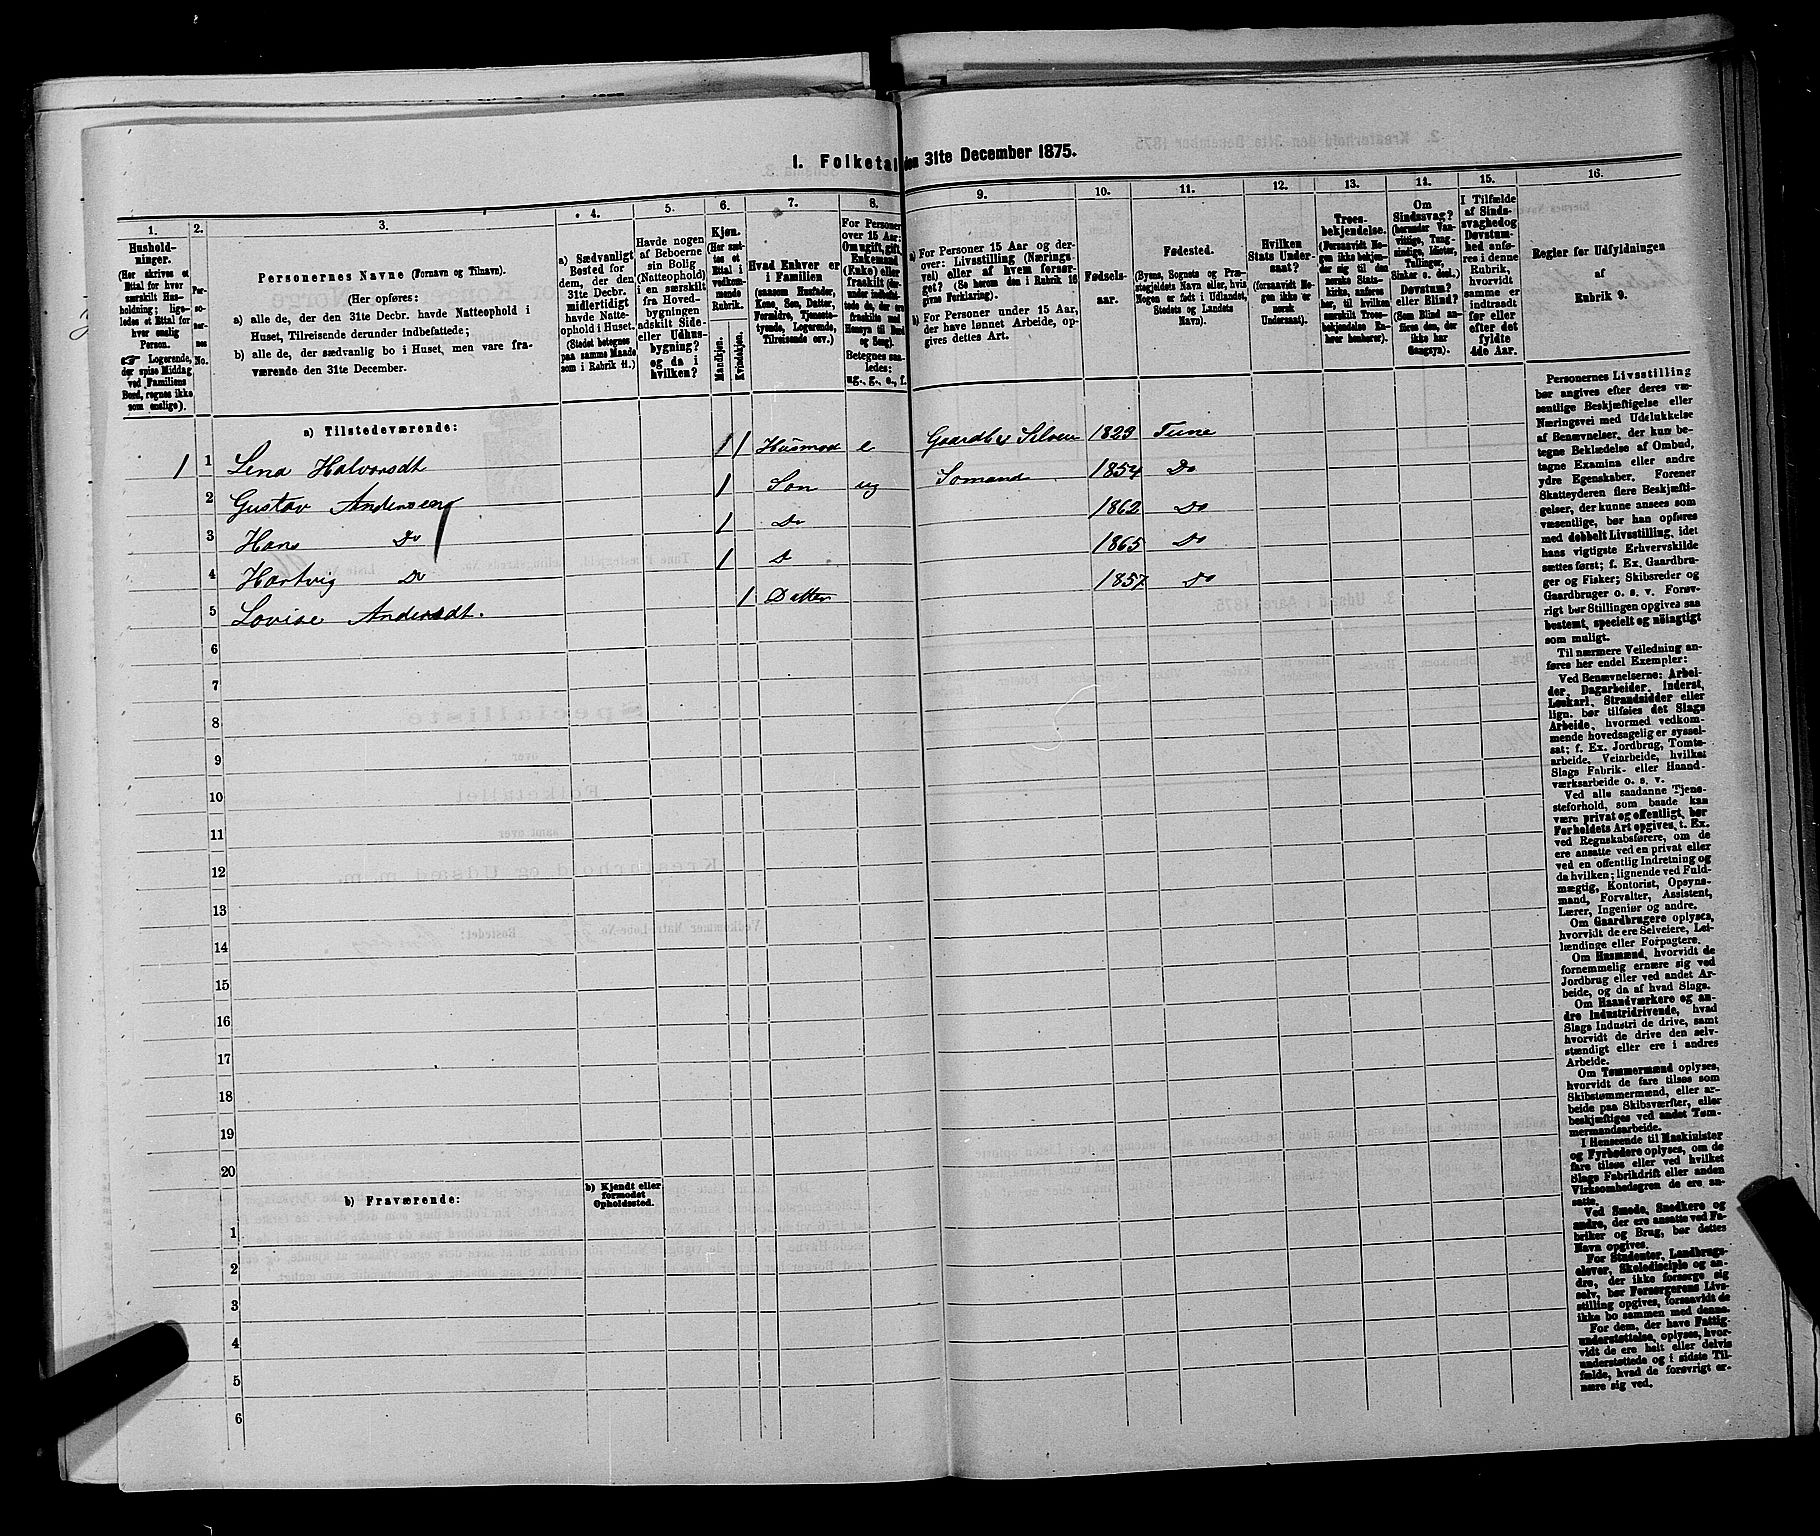 1. Folketal den 31te December 1875.
1.
Hushold-
ninger.
(Her skrives et
Ettal for hver
særskilt Hus-
holdning; lige-
ledes et Ettal for
hver enslig
Person.
☞ Logerende,
der spise Middag
ved Familiens
Bord, regnes ikke
som enslige).
2.
Per-
so-
ner-
nes
No.
3.
Personernes Navne (Fornavn og Tilnavn).
(Her opføres:
a) alle de, der den 31te Decbr. havde Natteophold i
Huset, Tilreisende derunder indbefattede;
b) alle de, der sædvanlig bo i Huset, men vare fra-
værende den 31te December.
4.
a) Sædvanligt
Bosted for
dem, der den
31te Decbr.
midlertidigt
havde Natte-
ophold i Huset.
(Stedet betegnes
paa samme Maade
som i Rubrik 11.)
5.
Havde nogen
af Beboerne
sin Bolig
(Natteophold)
i en særskilt
fra Hoved-
bygningen
adskilt Side-
eller Udhus-
bygning?
og da i
hvilken?
6.
Kjøn.
(Her sæt-
tes et
Ettal i
vedkom-
mende
Rubrik.
Mandkjøn.
Kvindekjøn.
7.
Hvad Enhver er
i Familien
(saasom Husfader,
Kone, Søn, Datter,
Forældre, Tjeneste-
tyende, Logerende,
Tilreisende osv.)
8.
For Personer
over 15 Aar:
Om ugift, gift,
Enkemand
(Enke) eller
fraskilt
Betegnes saa-
ledes:
ug., g., e., f.
9.
a) For Personer 15 Aar og der-
over: Livsstilling (Nærings-
vei) eller af hvem forsør-
get? (Se herom den i Rubrik 16
gives Forklaring).
b) For Personer under 15 Aar,
der have lønnet Arbeide, op-
gives dettes Art.
10.
Fødsels-
aar.
11.
Fødested.
(Byens, Sognets og Præ-
stegjeldets Navn eller, hvis
Nogen er født i Udlandet,
Stedets og Landets
Navn).
12.
Hvilken
Stats Under-
saat?
(forsaavidt No-
gen ikke er
norsk
Undersaat).
13.
Troes-
bekjendelse.
(Forsaavidt No-
gen ikke bekjen-
der sig til den
norske Stats-
kirke, anføres
her, til hvilken
særskilt Troes-
bekjendelse En-
hver henhører).
14.
Om
Sindssvag?
(herunder Van-
vittige, Tung-
sindige, Idioter,
Tullinger,
Sinker o. desl.)
Døvstum?
eller Blind?
(Som Blind an-
føres den, der
ikke har
Gangsyn).
15.
I Tilfælde
af Sinds-
svaghed og
Døvstum-
hed anfø-
res i denne
Rubrik,
hvorvidt
samme er
indtraadt
før eller
efter det
fyldte
4de Aar.
16.
Regler for Udfyldningen
af
Rubrik 9.
a) Tilstedeværende:
1 1 Lena Halvorsdt 1 1 Husmod e Gaardbr Selveier 1823 Tune
2 Gustav Andersen 1 Søn ug Sømand 1854 Do
3 Hans Do 1 Do 1862 Do
4 Hartvig Do 1 D 1865 Do
5 Lovise Andersdt. 1 Datter 1857 Do
6
7
8
9
10
11
12
13
14
15
16
17
18
19
20
b) Fraværende:
b) Kjendt eller
formodet
Opholdssted.
1
2
3
4
5
6
Personernes Livsstilling
bør angives efter deres væ-
sentlige Beskjæftigelse eller
Næringsvei med Udelukkelse
af Benævnelser, der kun be-
tegne Beklædelse af Ombud,
tagne Examina eller andre
ydre Egenskaber. Forener
Skatteyderen flere Beskjæfti-
gelser, der kunne ansees som
væsentlige, bør han opføres
med dobbelt Livsstilling, idet
hans vigtigste Erhvervskilde
sættes først; f. Ex. Gaardbru-
ger og Fisker; Skibsreder og
Gaardbruger o. s. v. Forøv-
rigt bør Stillingen opgives saa
bestemt, specielt og nøiagtigt
som muligt.
Til nærmere Veiledning an-
føres her endel Exempler:
Ved Benævnelserne: Arbei-
der, Dagarbeider, Inderst,
Løskarl, Strandsidder eller
lign. bør tilføies det Slags
Arbeide, hvormed vedkom-
mende hovedsagelig er syssel-
sat; f. Ex. Jordbrug, Tomte-
arbeide, Veiarbeide, hvilket
Slags Fabrik- eller Haand-
værksarbeide o. s. v.
Ved alle saadanne Tjene-
steforhold, som baade kan
være privat og offentligt, bør
Forholdets Art opgives, t. Ex.
ved Regnskabsførere, om de
ere ansatte ved en privat eller
ved en offentlig Indretning og
da hvilken; lignende ved Fuld-
mægtig, Kontorist, Opsyns-
mand, Forvalter, Assistent,
Lærer, Ingeniør og andre.
Om Gaardbrugere oplyses,
hvorvidt de ere Selveiere, Lei-
lændinge eller Forpagtere.
Om Husmænd, hvorvidt de
fornemmelig ernære sig ved
Jordbrug eller ved andet Ar-
beide, og da af hvad Slags.
Om Haandværkere og an-
dre Industridrivende, hvad
Slags Industri de drive, samt
hvorvidt de drive den selv-
stændigt eller ere i andres
Arbeide.
Om Tømmermænd oplyses,
hvorvidt de fare tilsøs som
Skibstømmermænd, eller ar-
beide paa Skibsværfter, eller
beskjæftiges ved andet Tøm-
mermandsarbeide.
I Henseende til Maskinister
og Fyrbødere oplyses, om de
fare tilsøs eller ved hvilket
Slags Fabrikdrift eller anden
Virksomhedsgren de ere an-
satte.
Ved Smede, Snedkere og
andre, der ere ansatte ved Fa-
briker og Brug, bør dettes
Navn opgives.
For Studenter, Landbrugs-
elever, Skoledisciple og an-
dre, der ikke forsørge sig
selv, bør Forsørgerens Livs-
stilling opgives, forsaavidt de
ikke bo sammen med denne.
For dem, der have Fattig-
understøttelse, oplyses, hvor-
vidt de ere helt eller delvis
understøttede og i sidste Til-
fælde, hvad de forøvrigt er-
nære sig ved.